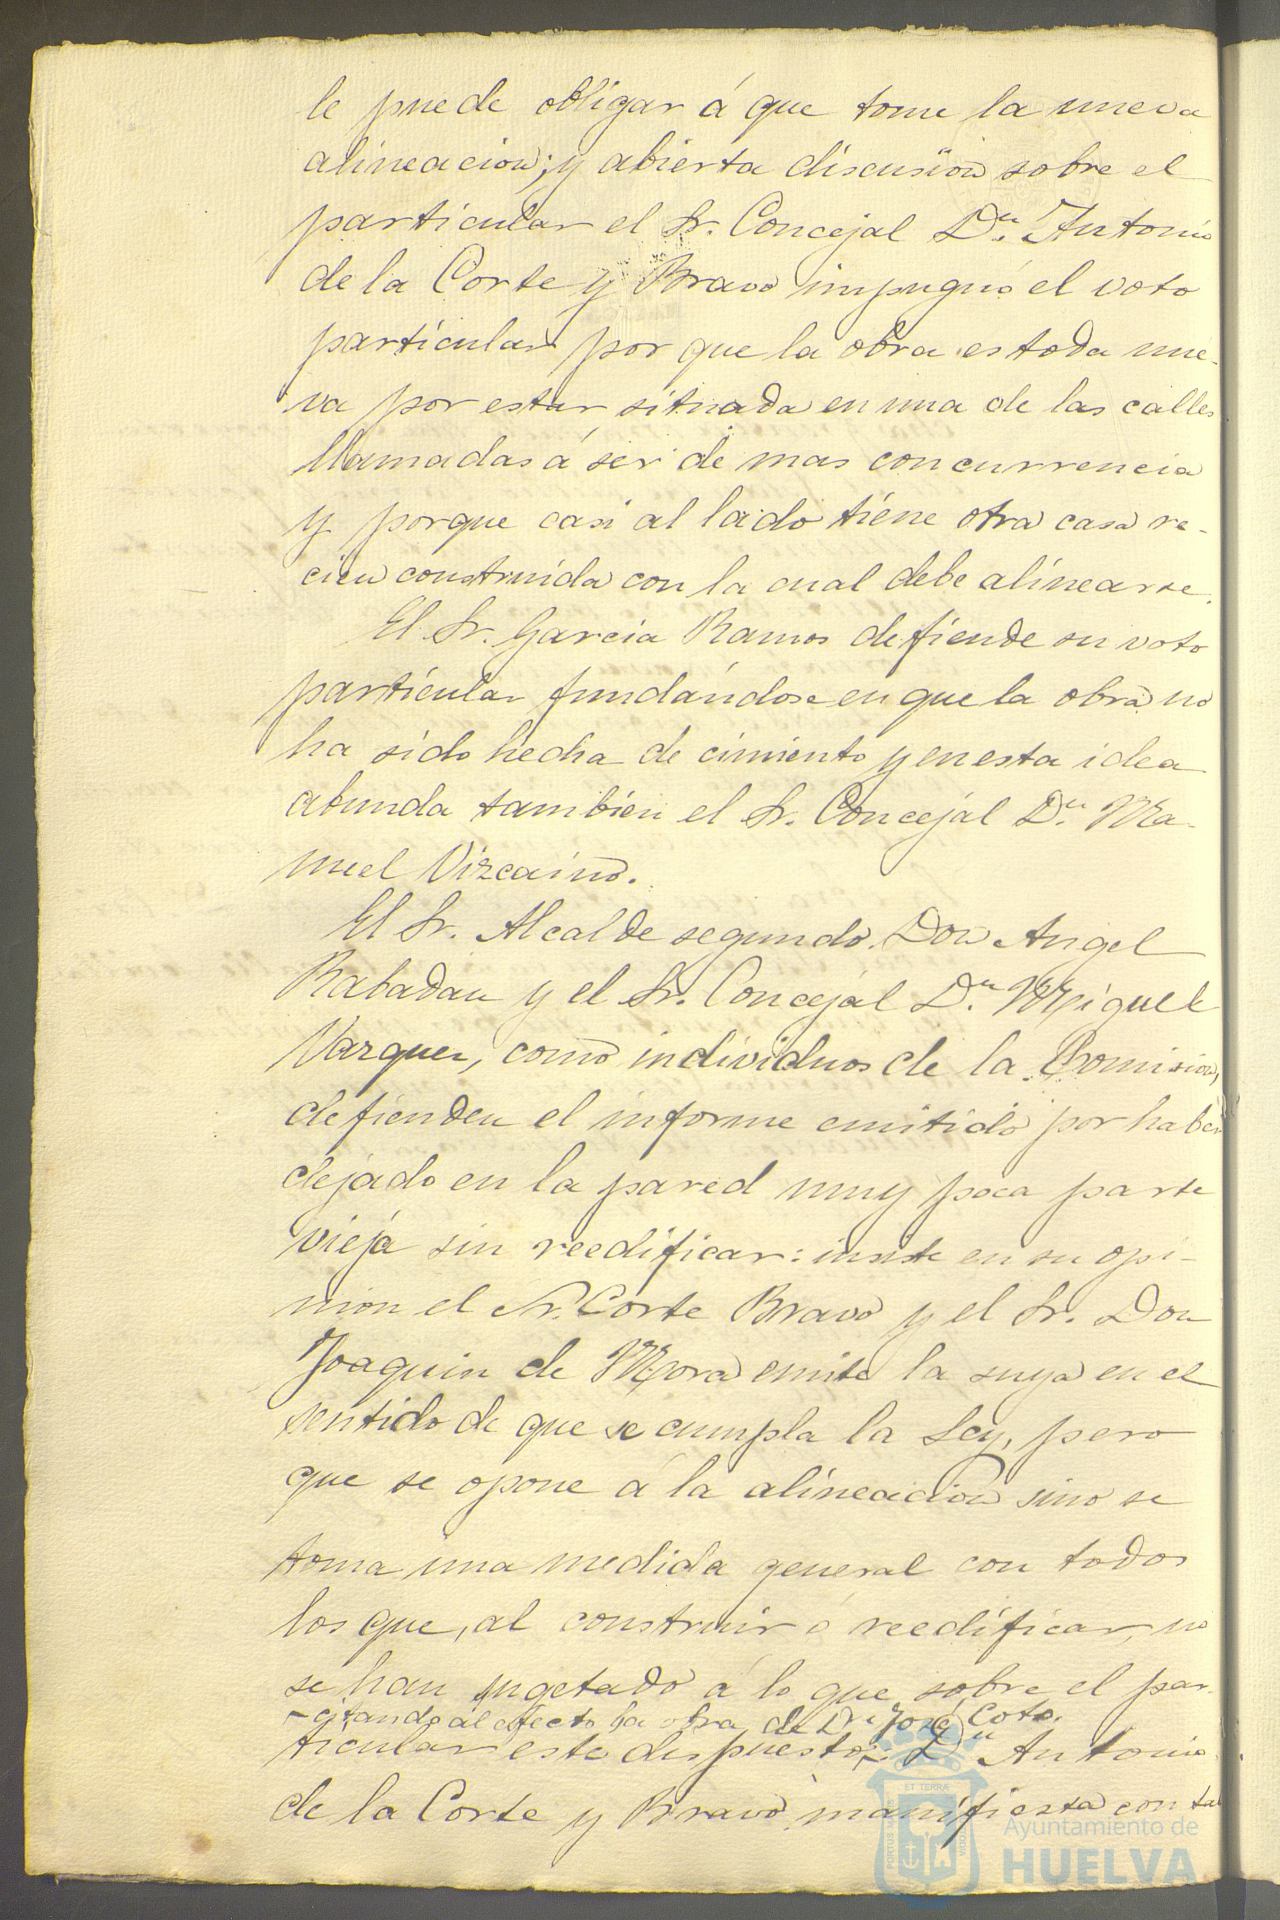 le puede obligar á que tome la nueva
alineacion; y abierta discusion sobre el
particular el Sr. Concejal Dn. Antonio
de la Corte y Bravo impugnó el voto
particular por que la obra es toda nue-
va por estar situada en una de las calles
llamadas á ser de mas concurrencia
y porque casi al lado tiene otra casa re-
cien construida con la cual debe alinearse.
El Sr. Garcia Ramos defiende su voto
particular fundándose en que la obra no
ha sido hecha de cimiento y en esta idea
abunda tambien el Sr. Concejal Dn. Ma-
nuel Vizcaino.
El Sr. Alcalde segundo Don Angel
Rabadan y el Sr. Concejal Dn. Miguel
Vazquez, como individuos de la Comision,
defienden el informe emitido por haber
dejado en la pared muy poca parte
vieja sin reedificar: insiste en su opi-
nion el Sr. Corte Bravo y el Sr. Don
Joaquin de Mora emite la suya en el
sentido de que se cumpla la Ley, pero
que se opone á la alineacion sino se
toma una medida general con todos
los que, al construir ó reedificar, no
se han sugetado á lo que sobre el par-
-citando al efecto la obra de Dn. José Coto.
ticular esta dispuesto: Dn Antonio
de la Corte y Bravo manifiesta con tal
PORTUS MARIS ET TERRÆ CUSTODIA
Ayuntamiento de
HUELVA